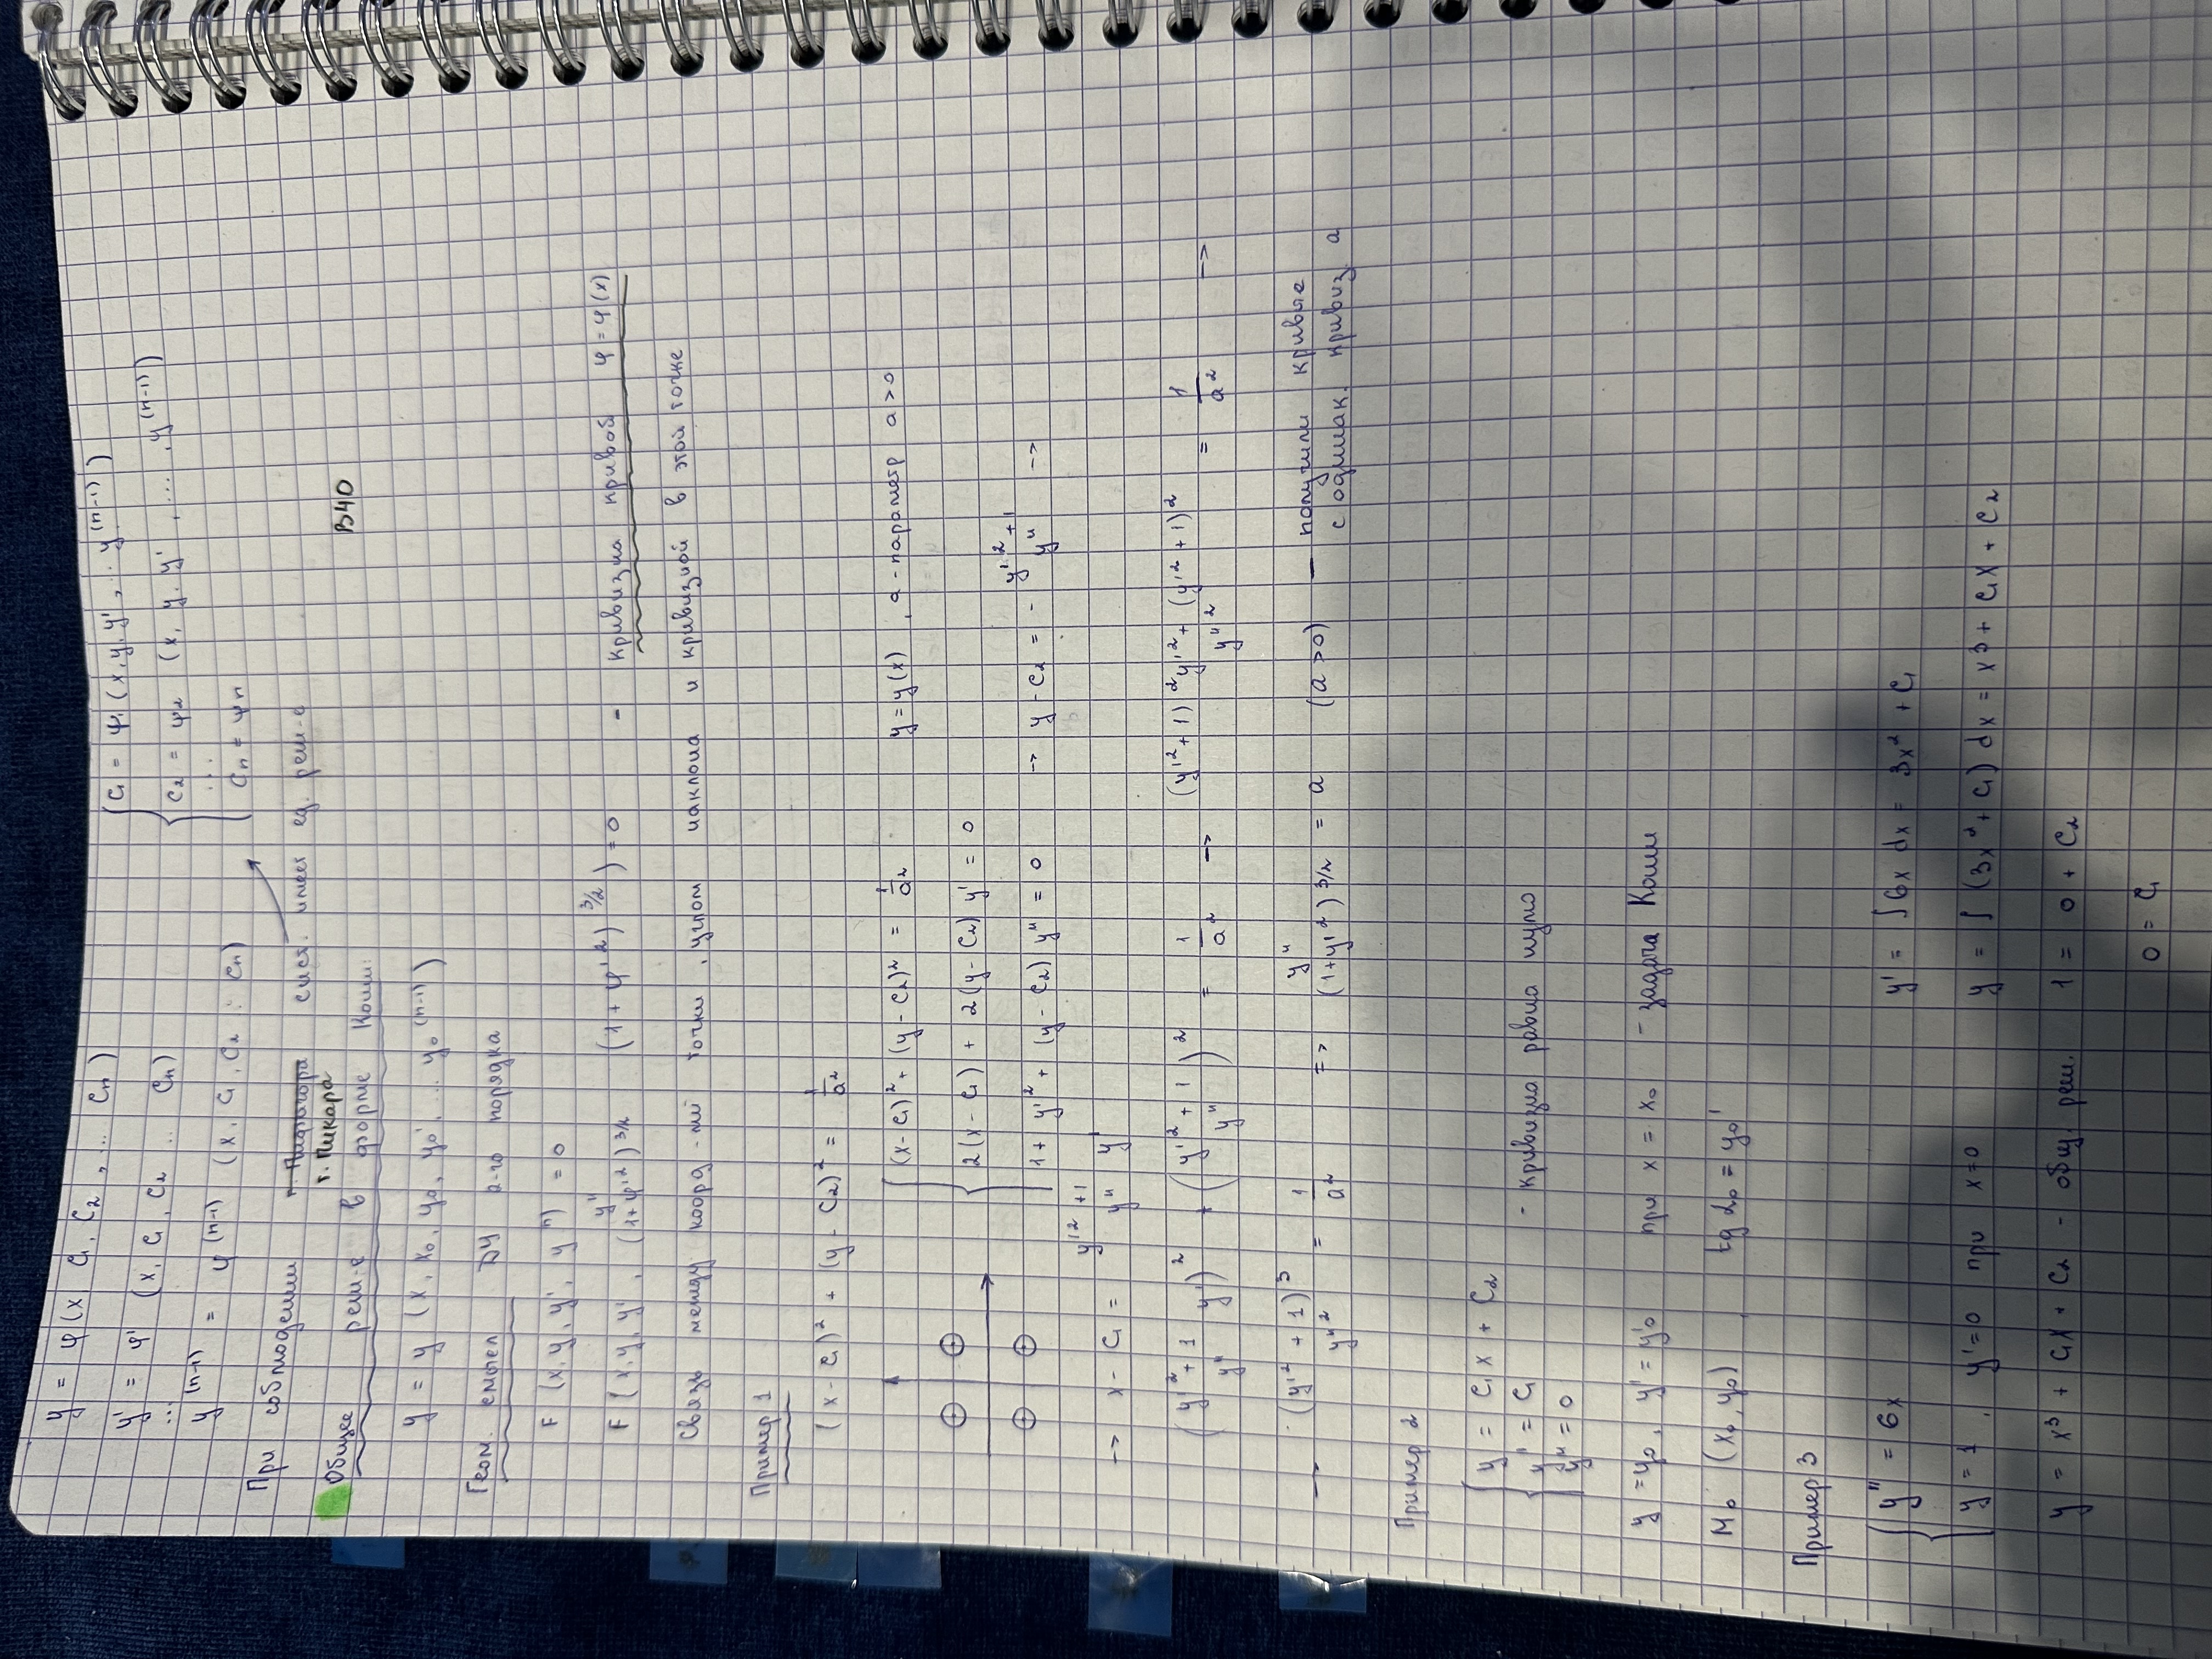 y = φ (x, C₁, C₂, ... Cₙ)
y' = φ' (x, C₁, C₂ ... Cₙ)
...
y⁽ⁿ⁻¹⁾ = φ⁽ⁿ⁻¹⁾ (x, C₁, C₂ ... Cₙ)
C₁ = ψ₁ (x, y, y', ... y⁽ⁿ⁻¹⁾)
C₂ = ψ₂ (x, y, y', ..., y⁽ⁿ⁻¹⁾)
...
Cₙ = ψₙ
При соблюдении т. Пикара сист. имеет ед. реш-е
Общее реш-е в форме Коши:
В40
y = y (x, x₀, y₀, y₀', ... y₀⁽ⁿ⁻¹⁾)
Геом. смысл ДУ 2-го порядка
F (x, y, y', y'') = 0
F (x, y, y', y''/(1+φ'²)^3/2 (1+φ'²)^3/2) = 0 - кривизна кривой φ = φ(x)
Связь между коорд-ми точки, углом наклона и кривизной в этой точке
Пример 1
(x - C₁)² + (y - C₂)² = 1/a²
(x - C₁)² + (y - C₂)² = 1/a² y = y(x), a - параметр a > 0
2(x - C₁) + 2(y - C₂) y' = 0
1 + y'² + (y - C₂) y'' = 0 → y - C₂ = - (y'² + 1)/y'' →
→ x - C₁ = (y'² + 1)/y'' y'
((y'² + 1)/y'' y')² + ((y'² + 1)/y'')² = 1/a² → ((y'² + 1)² y'² + (y'² + 1)²)/y''² = 1/a² →
→ (y'² + 1)³/y''² = 1/a² => y''/(1 + y'²)^3/2 = a (a > 0) - получили кривые
с одинак. кривиз. a
Пример 2
y = C₁x + C₂
y' = C₁ - кривизна равна нулю
y'' = 0
y = y₀, y' = y'₀ при x = x₀ - задача Коши
M₀ (x₀, y₀), tg α₀ = y₀'
Пример 3
y'' = 6x y' = ∫ 6x dx = 3x² + C₁
y = 1, y' = 0 при x = 0 y = ∫ (3x² + C₁) dx = x³ + C₁x + C₂
y = x³ + C₁x + C₂ - общ. реш. 1 = 0 + C₂
0 = C₁